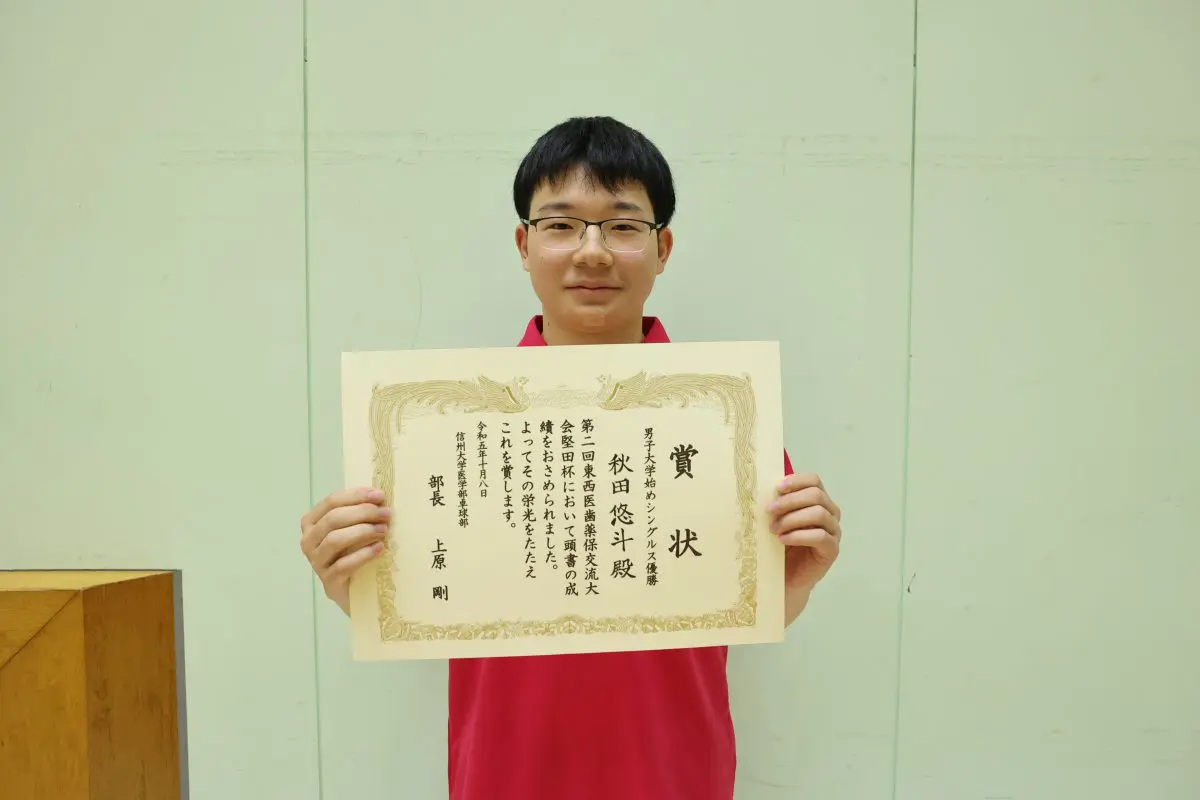 賞状
男子大学始めシングルス優勝
秋田悠斗殿
第二回東西医歯薬保交流大
会堅田杯において頭書の成
績をおさめられました。
よってその栄光をたたえ
これを賞します。
令和五年十月八日
信州大学医学部卓球部
部長 上原 剛